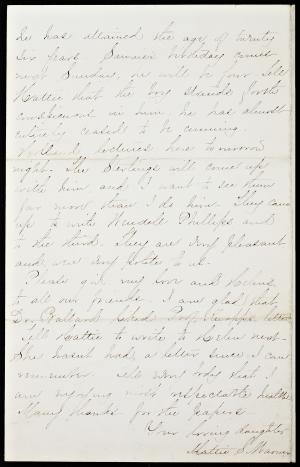 he has attained the age of twenty
six years. Sammie's birthday comes
next Sunday, he will be four. Tell
Hattie that the boy stands forth
in him, he has almost
entirely ceased to be cunning.
lectures here tomorrow
night. The Sterlings will come up
with him and I want to see them
far more than I do him. They came
up to write Wendell Phillips and
to the third. They are very pleasant
and are very polite to us.
Please give my love and
to all our friends. I am glad that
Dr. Ballard liked Prof.
Tell Hattie to write to Helen next.
She hasn't had a letter since I can
remember. Tell every body that I
am enjoying most respectable health
Many thanks for the papers
Your loving daughter
Mattie S. Warner